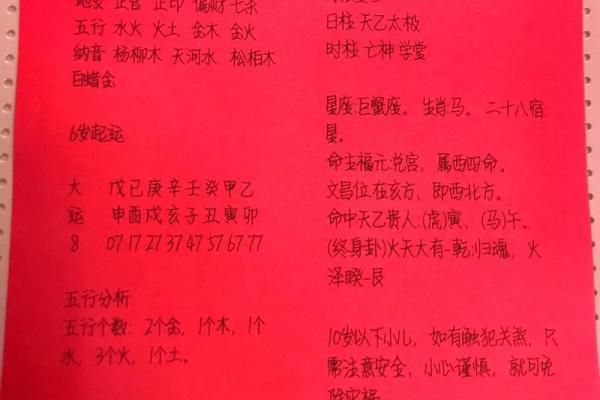 地支 正官 正印 偏财 七杀
五行 水火 火土 金木 金火
纳音 杨柳木 天河水 松柏木
白蜡金
6岁起运
大 戊己庚辛壬癸甲乙
运 申酉戍亥子丑寅卯
8 07 17 27 37 47 57 67 77
五行分析
五行个数: 2个金, 1个木, 1个
水, 3个火, 1个土。
日柱 天乙太极
时柱 亡神 学堂
星座:巨蟹座。 生肖:马。 二十八宿:
星。
命主福元:兑宫, 属西四命。
文昌位 在亥方、即西北方。
命中天乙贵人: (虎)寅、(马)午。
(终身卦)火天大有-乾:归魂, 火
泽睽-艮
10岁以下小儿, 如有触犯关煞, 只
需注意安全、小心谨慎, 就可免
除灾祸